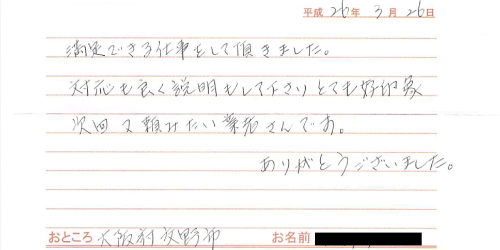 平成 26年 3月 26日
満足できる仕事をして頂きました。
対応も良く説明もして下さりとても好印象
次回又頼みたい業者さんです。
ありがとうございました。
おところ 大阪府交野市 お名前